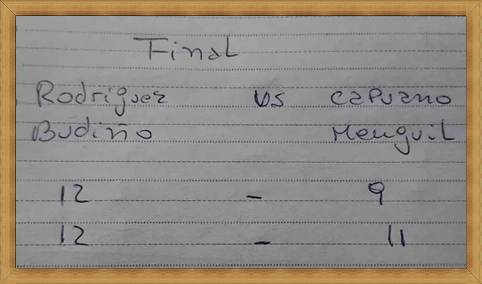 Final
Rodriguez vs Capuano
Budiño Menguil
12 - 9
12 - 11